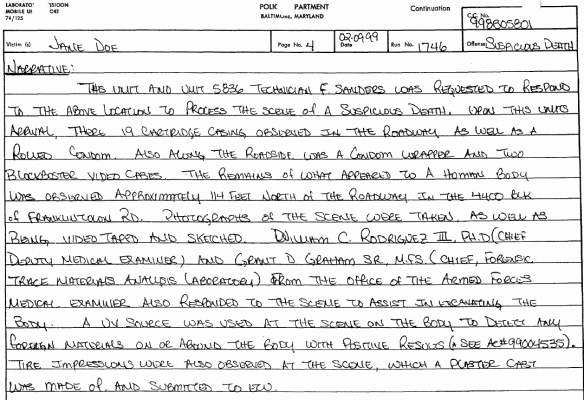 LABORATO
MOBILE UN
74/125
POLI PARTMENT
BALTIMORE, MARYLAND
Continuation
C.C. No.
998B05801
Victim (s) JANE DOE
Page No. 4
02-09-99
Date
Run No. 1746
Offense SUSPICIOUS DEATH
NARRATIVE:
THIS UNIT AND UNIT 5836 TECHNICIAN F. SANDERS WAS REQUESTED TO RESPOND
TO THE ABOVE LOCATION TO PROCESS THE SCENE OF A SUSPICIOUS DEATH. UPON THIS UNITS
ARRIVAL, THERE 19 CARTRIDGE CASING OBSURVED IN THE ROADWAY AS WELL AS A
ROLLED CONDOM. ALSO ALONG THE ROADSIDE WAS A CONDOM WRAPPER AND TWO
BLOCKBOSTER VIDEO CASES. THE REMAINS OF WHAT APPEARED TO A HUMAN BODY
WAS OBSURVED APPROXIMATELY 114 FEET NORTH OF THE ROADWAY IN THE 4400 BLK
OF FRANKLINTOWN RD. PHOTOGRAPHS OF THE SCENE WERE TAKEN, AS WELL AS
BEING VIDEO TAPED AND SKETCHED. WILLIAM C. RODRIGUEZ III, PH.D (CHIEF
DEPUTY MEDICAL EXAMINER) AND GRANT D GRAHAM SR. M.F.S (CHIEF, FORENSIC
TRACE MATERIALS ANALYSIS LABORATORY) FROM THE OFFICE OF THE ARMED FORCES
MEDICAL EXAMINER ALSO RESPONDED TO THE SCENE TO ASSIST IN EXCAVATING THE
BODY. A UV SOURCE WAS USED AT THE SCENE ON THE BODY TO DETECT ANY
FOREIGN MATERIALS ON OR AROUND THE BODY WITH POSITIVE RESULTS (SEE AC#99004535).
TIRE IMPRESSIONS WERE ALSO OBSERVED AT THE SCENE, WHICH A PLASTER CAST
WAS MADE OF AND SUBMITTED TO ECU.